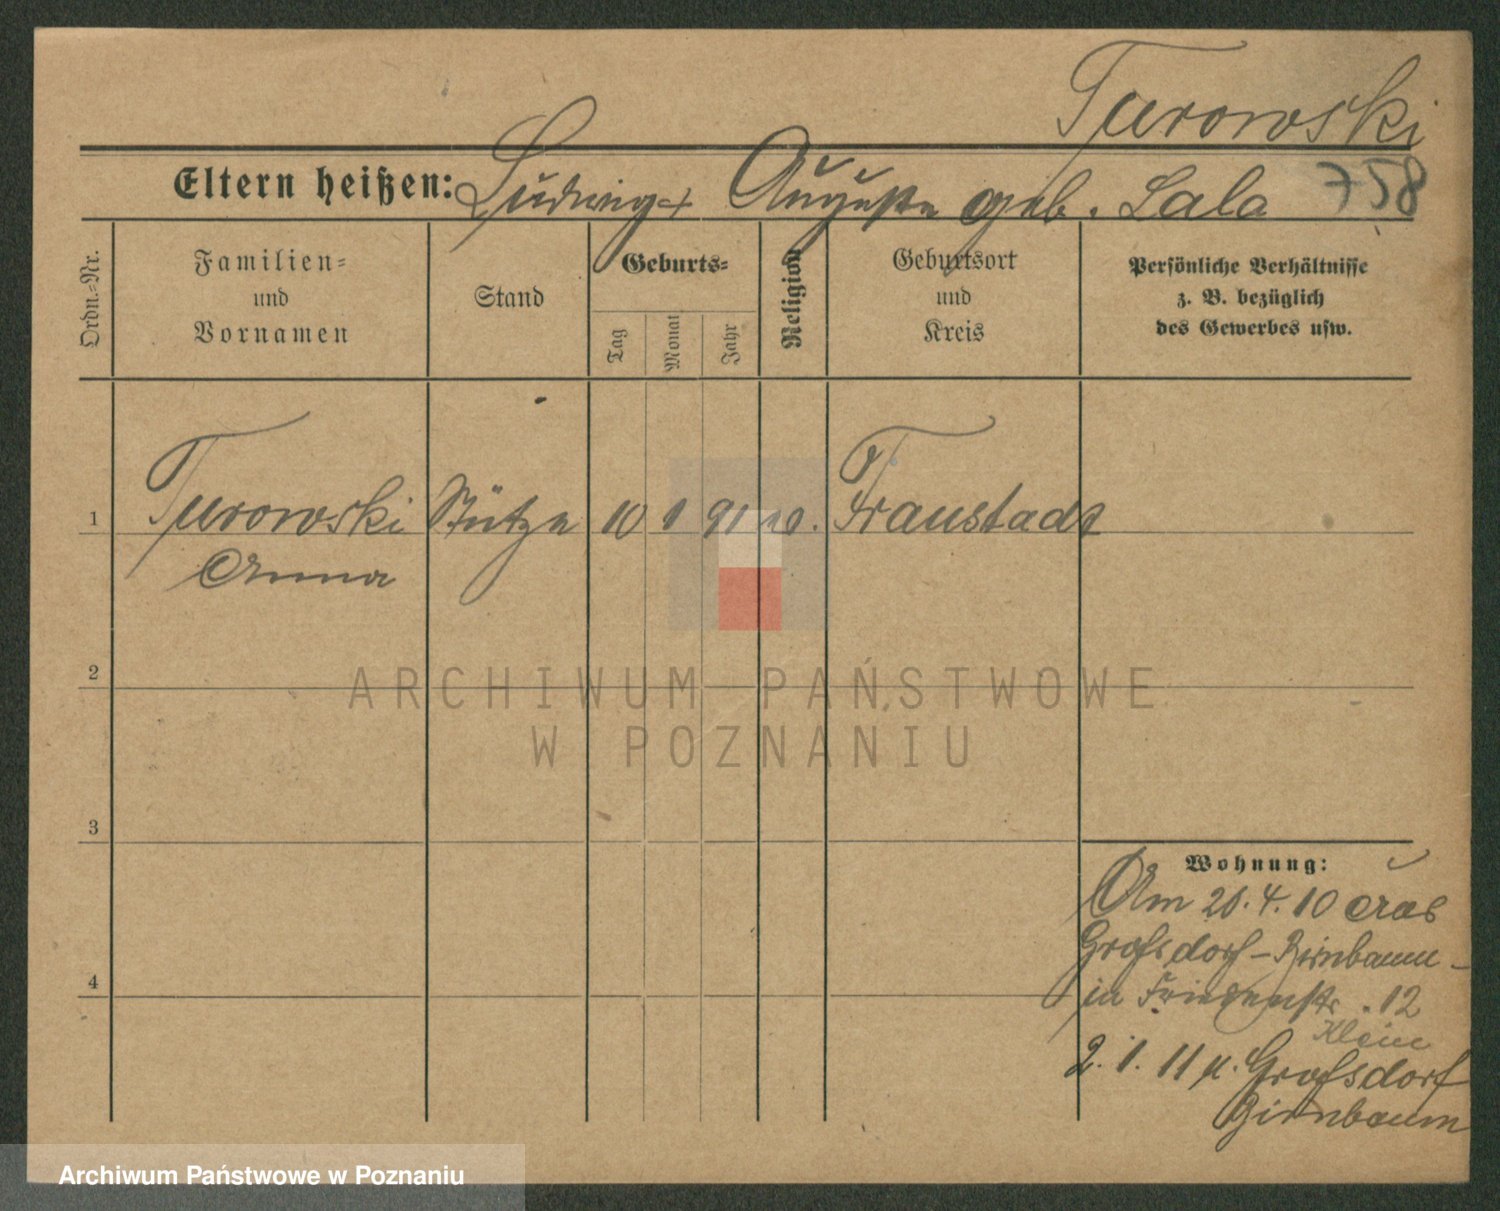 Turowski
Eltern heißen: Ludwig + Auguste geb. Lala 758
Ordn.-Nr.
Familien-
und
Vornamen
Stand
Geburts-
Tag
Monat
Jahr
Religion
Geburtsort
und
Kreis
Persönliche Verhältnisse
z. B. bezüglich
des Gewerbes usw.
1 Turowski Stütze 10 1 91 Fraustadt
Anna
2
3
4
Wohnung:
Am 20.4.10 aus
Grossdorf-Birnbaum-
in Friedenstr. 12
Klein
2.1.11 n. Grossdorf
Birnbaum
ARCHIWUM PAŃSTWOWE
W POZNANIU
Archiwum Państwowe w Poznaniu